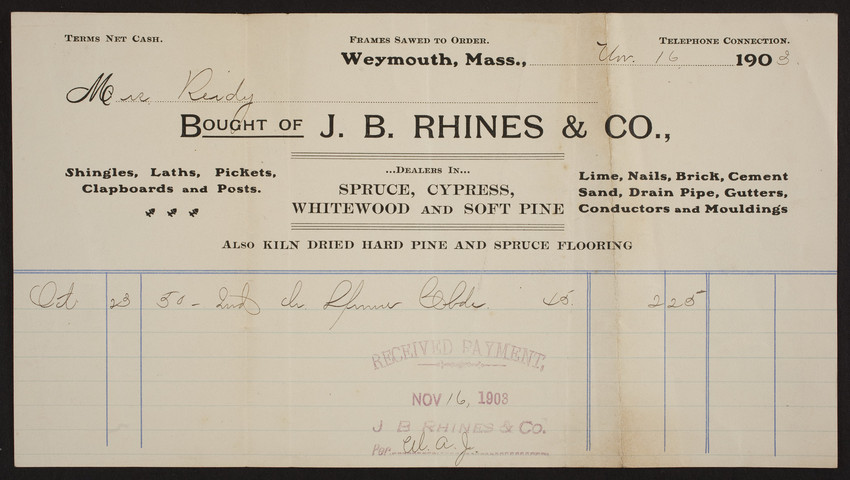 Terms Net Cash.
Frames Sawed to Order.
Telephone Connection.
Weymouth, Mass., Nov. 16 1903.
M Reidy
Bought of J. B. RHINES & CO.,
Shingles, Laths, Pickets,
Clapboards and Posts.
...Dealers In...
SPRUCE, CYPRESS,
WHITEWOOD AND SOFT PINE
Lime, Nails, Brick, Cement
Sand, Drain Pipe, Gutters,
Conductors and Mouldings
Also KILN DRIED HARD PINE AND SPRUCE FLOORING
Oct 23 50 - 2nd Clbds. 45 2 25
RECEIVED PAYMENT,
NOV 16, 1903
J B RHINES & CO.
Per. A. J.